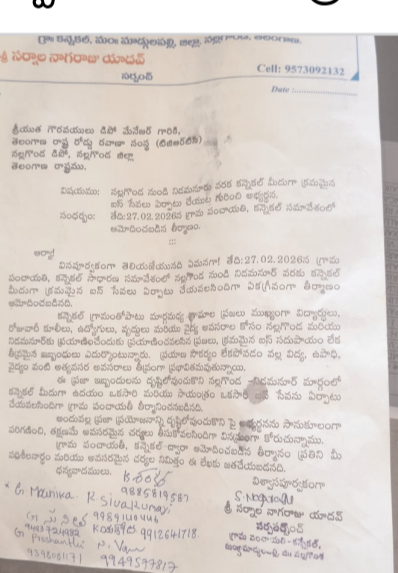 గ్రా॥ కన్నెకల్, మం॥ మాడ్గులపల్లి, జిల్లా, నల్లగొండ, తెలంగాణ.
శ్రీ సర్పాల నాగరాజు యాదవ్
సర్పంచ్
Cell: 9573092132
Date :..............
శ్రీయుత గౌరవయులు డిపో మేనేజర్ గారికి,
తెలంగాణ రాష్ట్ర రోడ్డు రవాణా సంస్థ (టిజిఆర్టిసి)
నల్లగొండ డిపో, నల్లగొండ జిల్లా
తెలంగాణ రాష్ట్రము.
విషయము: నల్లగొండ నుండి నిడమనూరు వరకు కన్నెకల్ మీదుగా క్రమమైన
బస్ సేవలు ఏర్పాటు చేయుట గురించి అభ్యర్థన.
సందర్భం: తేది:27.02.2026న గ్రామ పంచాయతీ, కన్నెకల్ సమావేశంలో
ఆమోదించబడిన తీర్మాణం.
:::
ఆర్యా!
వినపూర్వకంగా తెలియజేయునది ఏమనగా! తేది:27.02.2026న గ్రామ
పంచాయతీ, కన్నెకల్ సాధారణ సమావేశంలో నల్లగొండ నుండి నిడమనూర్ వరకు కన్నెకల్
మీదుగా క్రమమైన బస్ సేవలు ఏర్పాటు చేయవలసిందిగా ఏకగ్రీవంగా తీర్మాణం
ఆమోదించబడినది.
కన్నెకల్ గ్రామంతోపాటు మార్గమధ్య గ్రామాల ప్రజలు ముఖ్యంగా విద్యార్థులు,
రోజువారీ కూలీలు, ఉద్యోగులు, వృద్ధులు మరియు వైద్య అవసరాల కోసం నల్లగొండ మరియు
నిడమనూరుకు ప్రయాణించేందుకు ప్రయాణించవలసిన ప్రజలు, క్రమమైన బస్ సదుపాయం లేక
తీవ్రమైన ఇబ్బందులు ఎదుర్కొంటున్నారు. ప్రయాణ సౌకర్యం లేకపోవడం వల్ల విద్య, ఉపాధి,
వైద్యం వంటి అత్యవసర అవసరాలు తీవ్రంగా ప్రభావితమవుతున్నాయి.
ఈ ప్రజా ఇబ్బందులను దృష్టిలోవుంచుకొని నల్లగొండ నిడమనూర్ మార్గంలో
కన్నెకల్ మీదుగా ఉదయం ఒకసారి మరియు సాయంత్రం ఒకసారి బస్ సేవను ఏర్పాటు
చేయవలసిందిగా గ్రామ పంచాయతీ తీర్మానించబడినది.
అందువల్ల ప్రజా ప్రయోజనాన్ని దృష్టిలోవుంచుకొని పై అభ్యర్థనను సానుకూలంగా
పరిగణించి, తక్షణమే అవసరమైన చర్యలు తీసుకోవలసిందిగా వినమ్రంగా కోరుచున్నాము.
గ్రామ పంచాయతీ, కన్నెకల్ ద్వారా ఆమోదించబడిన తీర్మానం ప్రతిని మీ
పరిశీలనార్థం మరియు అవసరమైన చర్యల నిమిత్తం ఈ లేఖకు జతచేయబడినది.
ధన్యవాదములు.
విశ్వాసపూర్వకంగా
9885819587
G Mounika
K Siva
శ్రీ సర్పాల నాగరాజు యాదవ్
సర్పంచ్
గ్రామ పంచాయతి - కన్నెకల్,
9912641718
G Prashanthi
9949597817